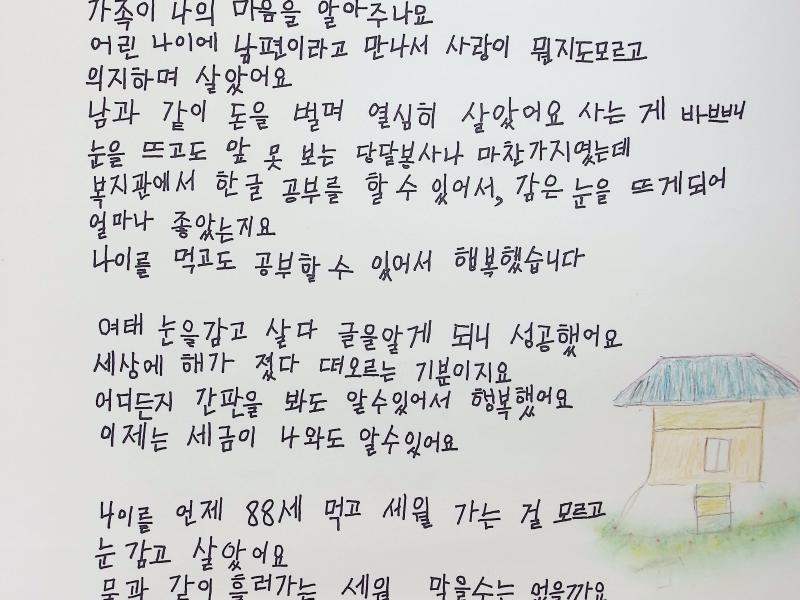 가족이 나의 마음을 알아주나요
어린 나이에 남편이라고 만나서 사랑이 뭔지도모르고
의지하며 살았어요
남과 같이 돈을 벌며 열심히 살았어요 사는 게 바쁘빠
눈을 뜨고도 앞 못 보는 당달봉사나 마찬가지였는데
복지관에서 한글 공부를 할 수 있어서, 감은 눈을 뜨게되어
얼마나 좋았는지요
나이를 먹고도 공부할 수 있어서 행복했습니다
여태 눈을감고 살다 글을알게 되니 성공했어요
세상에 해가 졌다 떠오르는 기분이지요
어디든지 간판을 봐도 알수있어서 행복했어요
이제는 세금이 나와도 알수있어요
나이를 언제 88세 먹고 세월 가는 걸 모르고
눈 감고 살았어요
물과 같이 흘러가는 세월 막을수는 없을까요